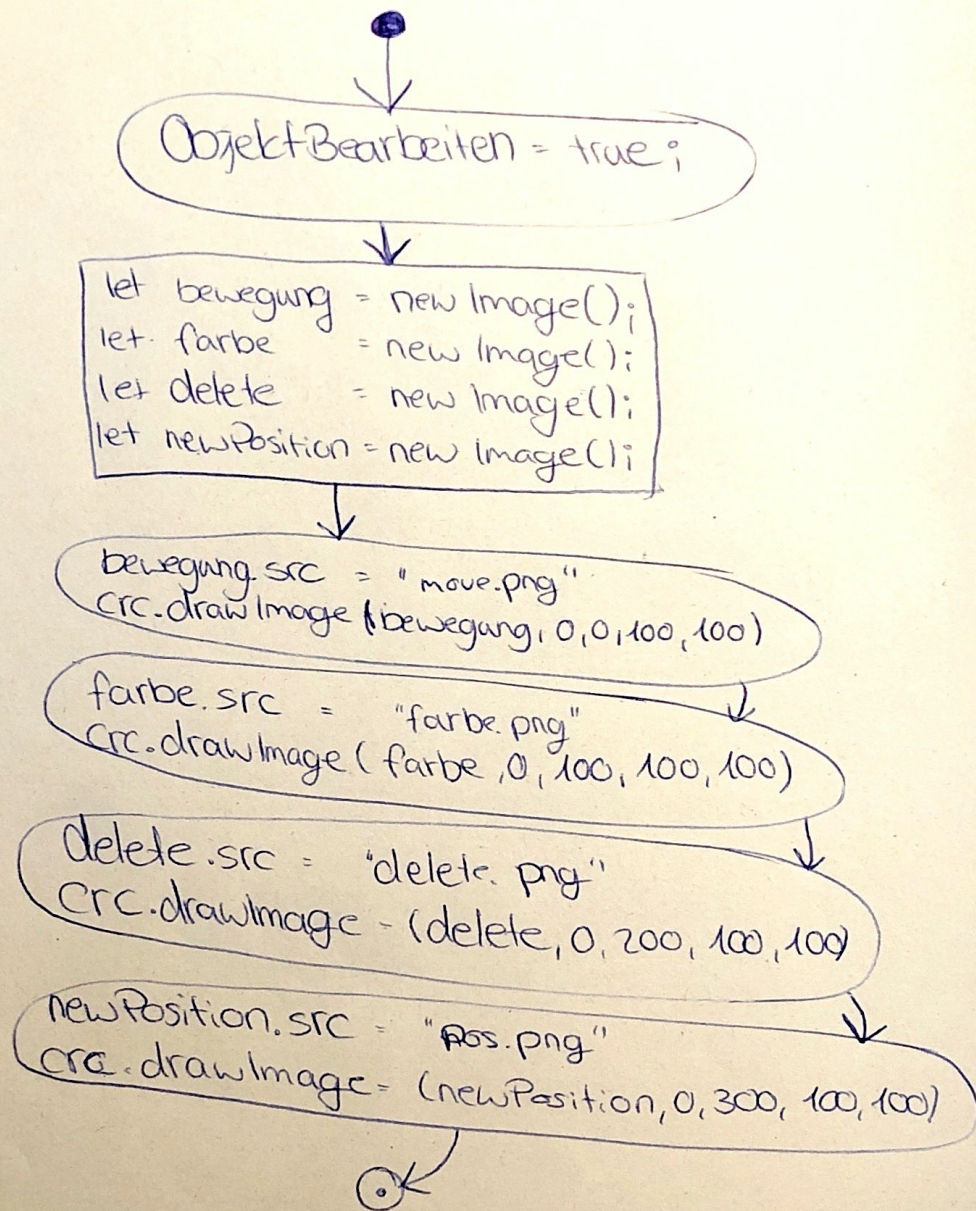 ObjektBearbeiten = true;
let bewegung = new Image();
let farbe = new Image();
let delete = new Image();
let newPosition = new Image();
bewegung.src = "move.png"
crc.drawImage (bewegung, 0,0,100,100)
farbe.src = "farbe.png"
crc.drawImage ( farbe ,0, 100, 100, 100)
delete.src = "delete. png"
crc.drawImage = (delete, 0, 200, 100, 100)
newPosition.src = "pos.png"
crc.drawImage = (newPosition, 0, 300, 100, 100)